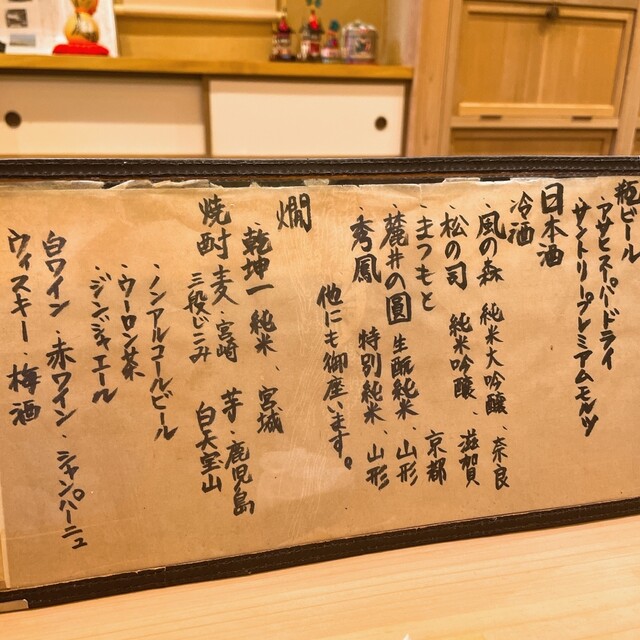 瓶ビール
・アサヒスーパードライ
サントリープレミアムモルツ
日本酒
冷酒
・風の森 純米大吟醸、奈良
・松の司 純米吟醸、滋賀
・まつもと 京都
・麓井の圓 生酛純米、山形
・秀鳳 特別純米、山形
他にも御座います。
燗
・乾坤一 純米、宮城
焼酎 麦、宮崎 芋、鹿児島
三段じこみ 白天宝山
・ノンアルコールビール
・ウーロン茶
・ジンジャエール
白ワイン、赤ワイン、シャンパーニュ
ウィスキー、梅酒